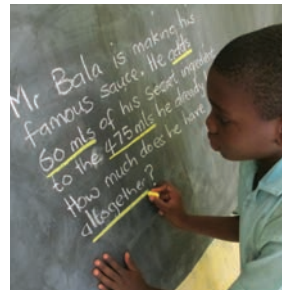 Mr Bala is making his
famous sauce. He adds
60 mls of his secret ingredient
to the 475 mls he already
How much does he have
altogether?